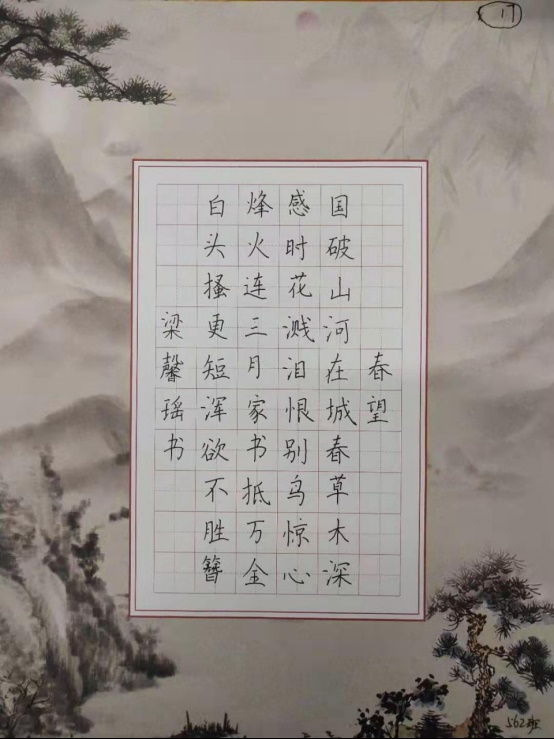 17
春望
国破山河在城春草木深
感时花溅泪恨别鸟惊心
烽火连三月家书抵万金
白头搔更短浑欲不胜簪
梁馨瑶书
562班